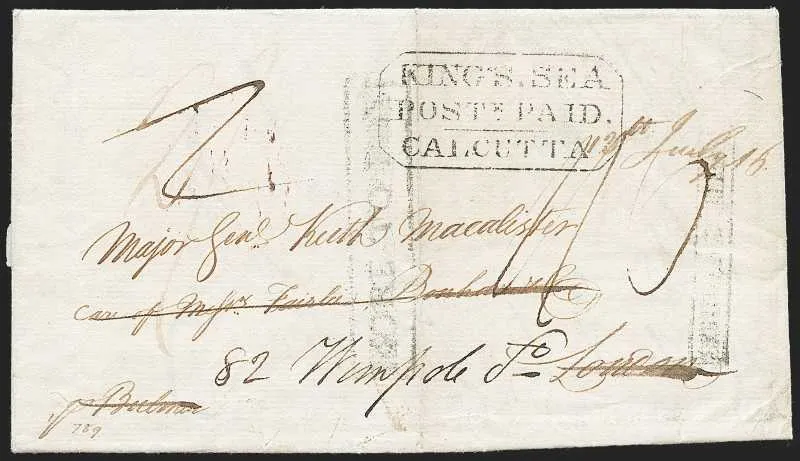 KING'S. SEA
POSTE PAID.
CALCUTTA
13th July 16
2
Major Genl Keith Macalister
Care of Messrs Fairlie Bonham & Co
82 Wimpole St London
pr
789